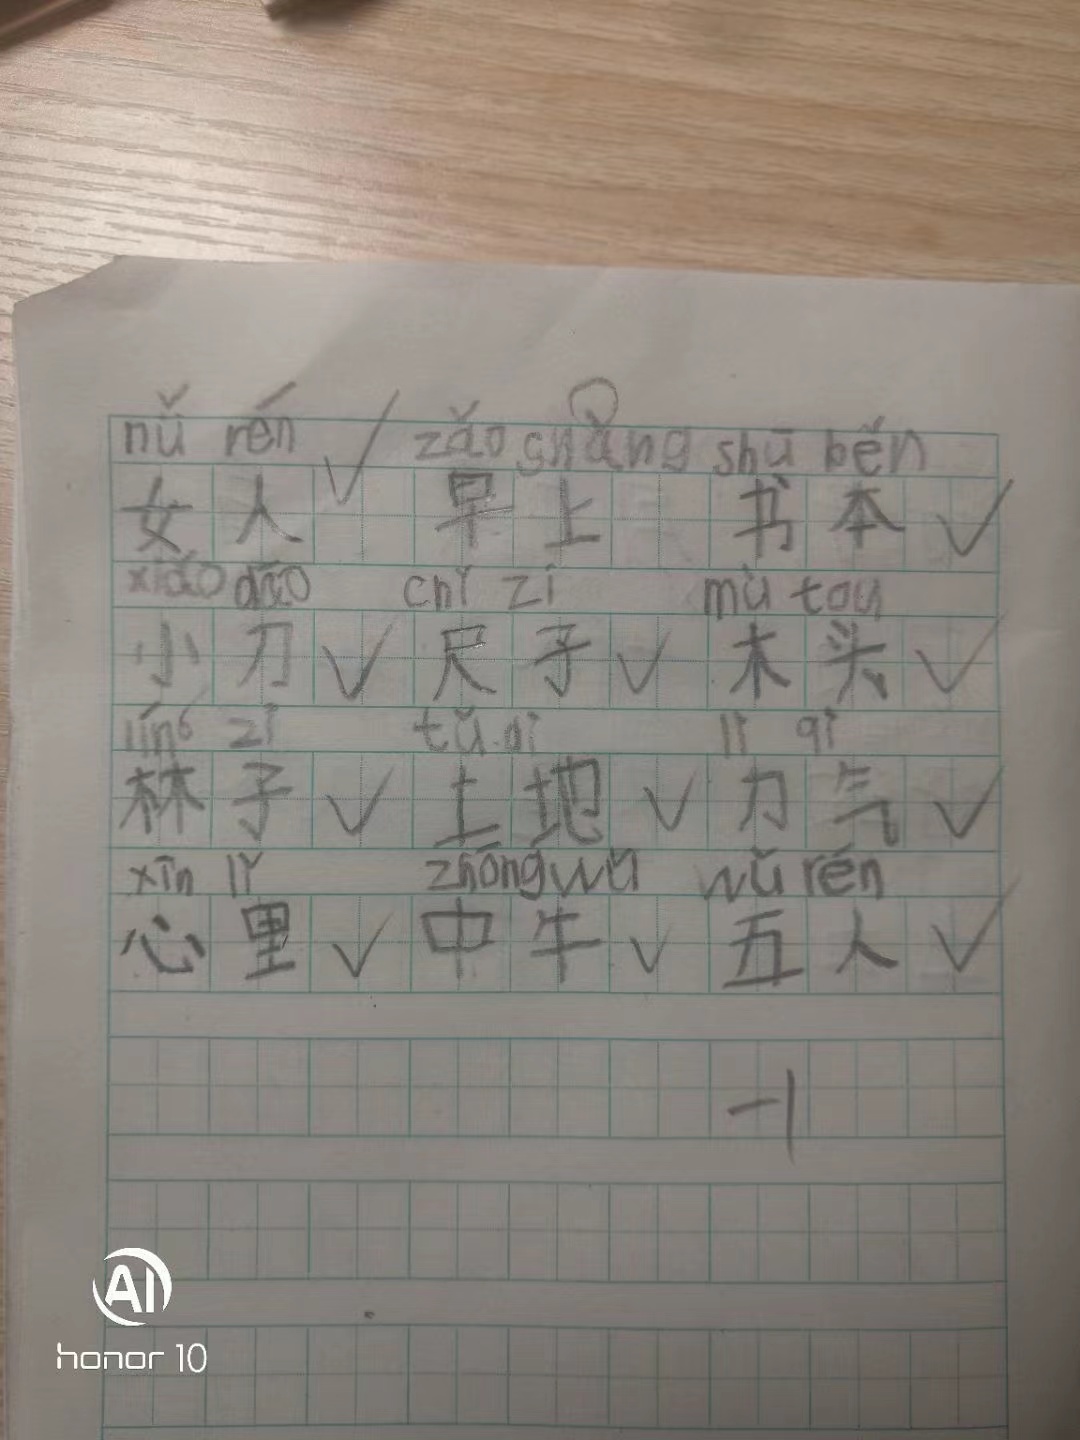 nǚ rén zǎo shàng shū běn
女人 早上 书本
xiǎo dāo chǐ zi mù tou
小刀 尺子 木头
zǐ tǔ lì qì
林子 土地 力气
xīn lǐ zhōng wǔ wǔ rén
心里 中午 五人
-1
AI
honor 10